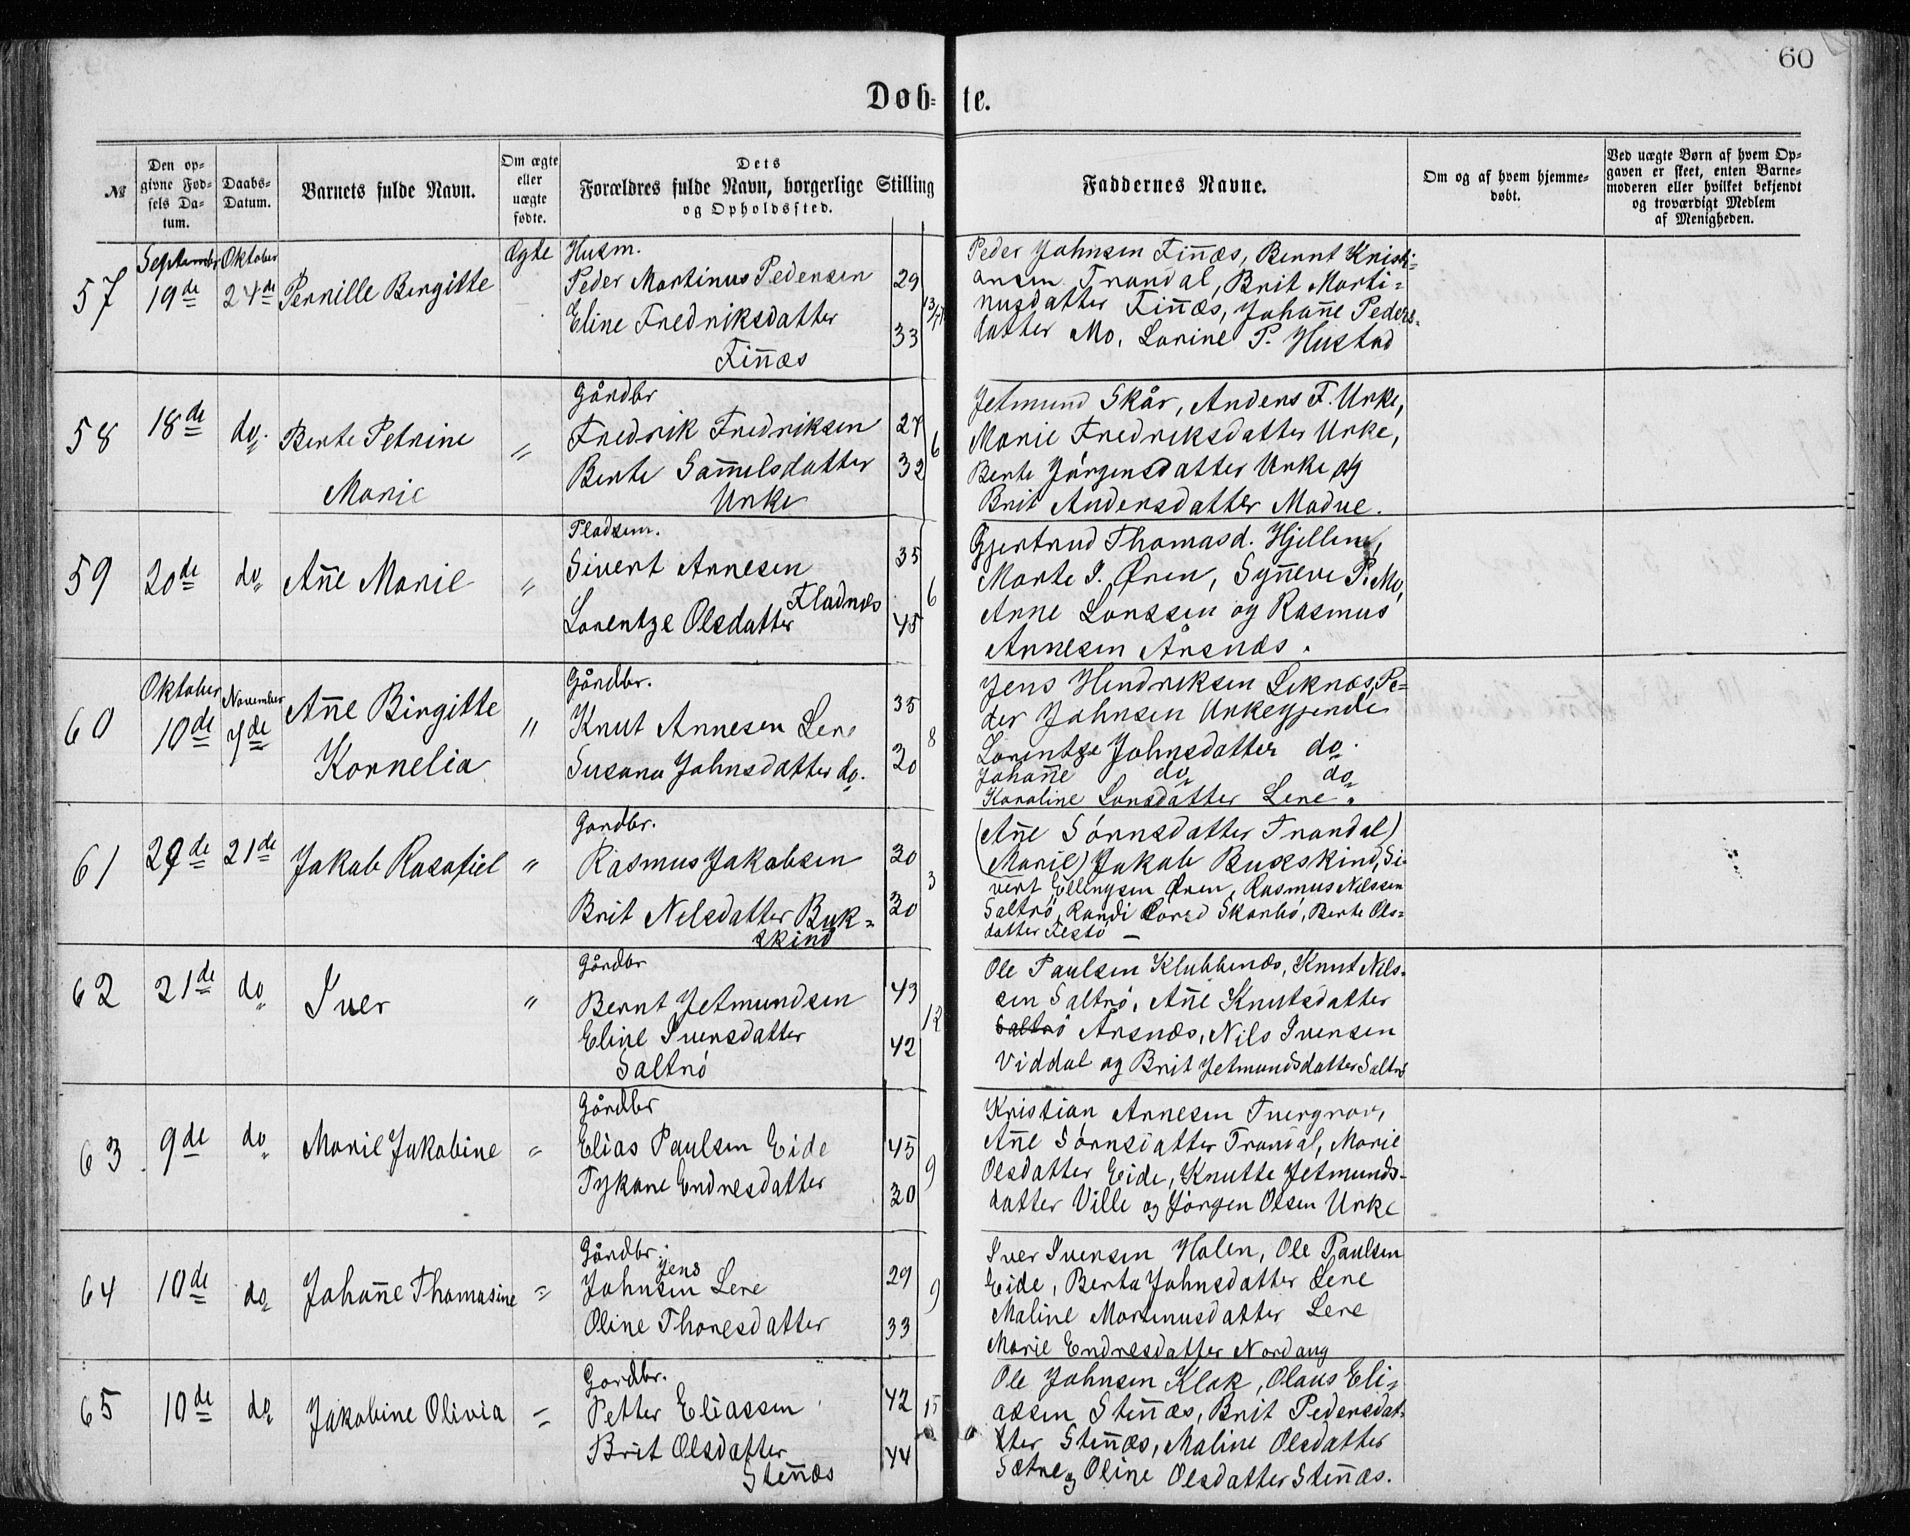 60
Døb- te.
№
Den op-
givne Fød-
sels Da-
tum.
Daabs-
Datum.
Barnets fulde Navn.
Om ægte
eller
uægte
fødte.
Dets
Forældres fulde Navn, borgerlige Stilling
og Opholdssted.
Faddernes Navne.
Om og af hvem hjemme-
døbt.
Ved uægte Børn af hvem Op-
gaven er skeet, enten Barne-
moderen eller hvilket bekjendt
og troværdigt Medlem
af Menigheden.
57
September
19de
Oktober
24de
Pernille Bergitte
Ægte
Husm.
Peder Martinus Pedersen 29
Eline Fredriksdatter 33
Finnæs
Peder Johnsen Finnæs, Bernt Kristi-
ansen Trandal, Brit Marti-
nusdatter Finnæs, Johanne Peders-
datter Mo, Lorine P. Hustad
58
18de
do.
Berte Petrine
Marie
"
Gårdbr
Fredrik Fredriksen 27
Berte Samuelsdatter 32
Urke
6
Jetmund Skår, Anders F. Urke,
Marie Fredriksdatter Urke,
Berte Jørgensdatter Urke og
Brit Andersdatter Madve.
59
20de
do
Anne Marie
"
Pladsm.
Sivert Arnesen 35
Fladnæs
Lorentze Olsdatter 45
6
Gjertrud Thomasd. Hjellen,
Marte I. Øren, Synneve P. Mo,
Arne Larssen og Rasmus
Arnesen Årsnæs.
60
Oktober
10de
November
7de
Anne Birgitte
Kornelia
"
Gårdbr.
Knut Arnesen Lere 35
Susana Johnsdatter do. 30
8
Jens Hendriksen Leknæs, Pe-
der Johnsen Urkegjende
Lorentze Johnsdatter do.
Johanne do do
Karoline Larsdatter Lere.
61
29de
21de
Jakob Rasafiel
"
Gardbr.
Rasmus Jakobsen 30
Brit Nelsdatter Buk- 30
skind
3
(Anne Sørnsdatter Trandal)
(Marie) Jakob Bukskind, Si-
vert Ellingsen Øren, Rasmus Nilssen
Saltrø, Randi Skarbø, Berte Ols-
datter Festø
62
21de
do
Iver
"
Gårdbr
Bernt Jetmundsen 43
Eline Iversdatter 42
Saltrø
12
Ole Paulsen Klubbenæs, Knut Nils-
sen Saltrø, Anne Knutsdatter
Saltrø Årsnæs, Nils Iversen
Viddal og Brit Jetmundsdatter Saltrø
63
9de
do
Marie Jakobine
"
Gårdbr
Elias Paulsen Eide 45
Tykane Endresdatter 30
9
Kristian Arnesen Tvergrov,
Anne Sørnsdatter Trandal, Marie
Olsdatter Eide, Knutte Jetmunds-
datter Ville og Jørgen Olsen Urke
64
10de
do
Johanne Thomasine
"
Gårdbr.
Jens
Johnsen Lere 29
Oline Thoresdatter 33
9
Iver Iversen Holen, Ole Paulsen
Eide, Berta Johnsdatter Lere
Maline Martinusdatter Lere
Marie Endresdatter Nordang
65
10de
do
Jakobine Olivia
"
Gardbr.
Petter Eliassen 42
Brit Olsdatter 44
Stennæs
15
Ole Johnsen Klok, Olaus Eli-
assen Stennæs, Brit Pedersdat-
tter Stennæs, Maline Olsdatter
Sætre og Oline Olsdatter Stennæs.